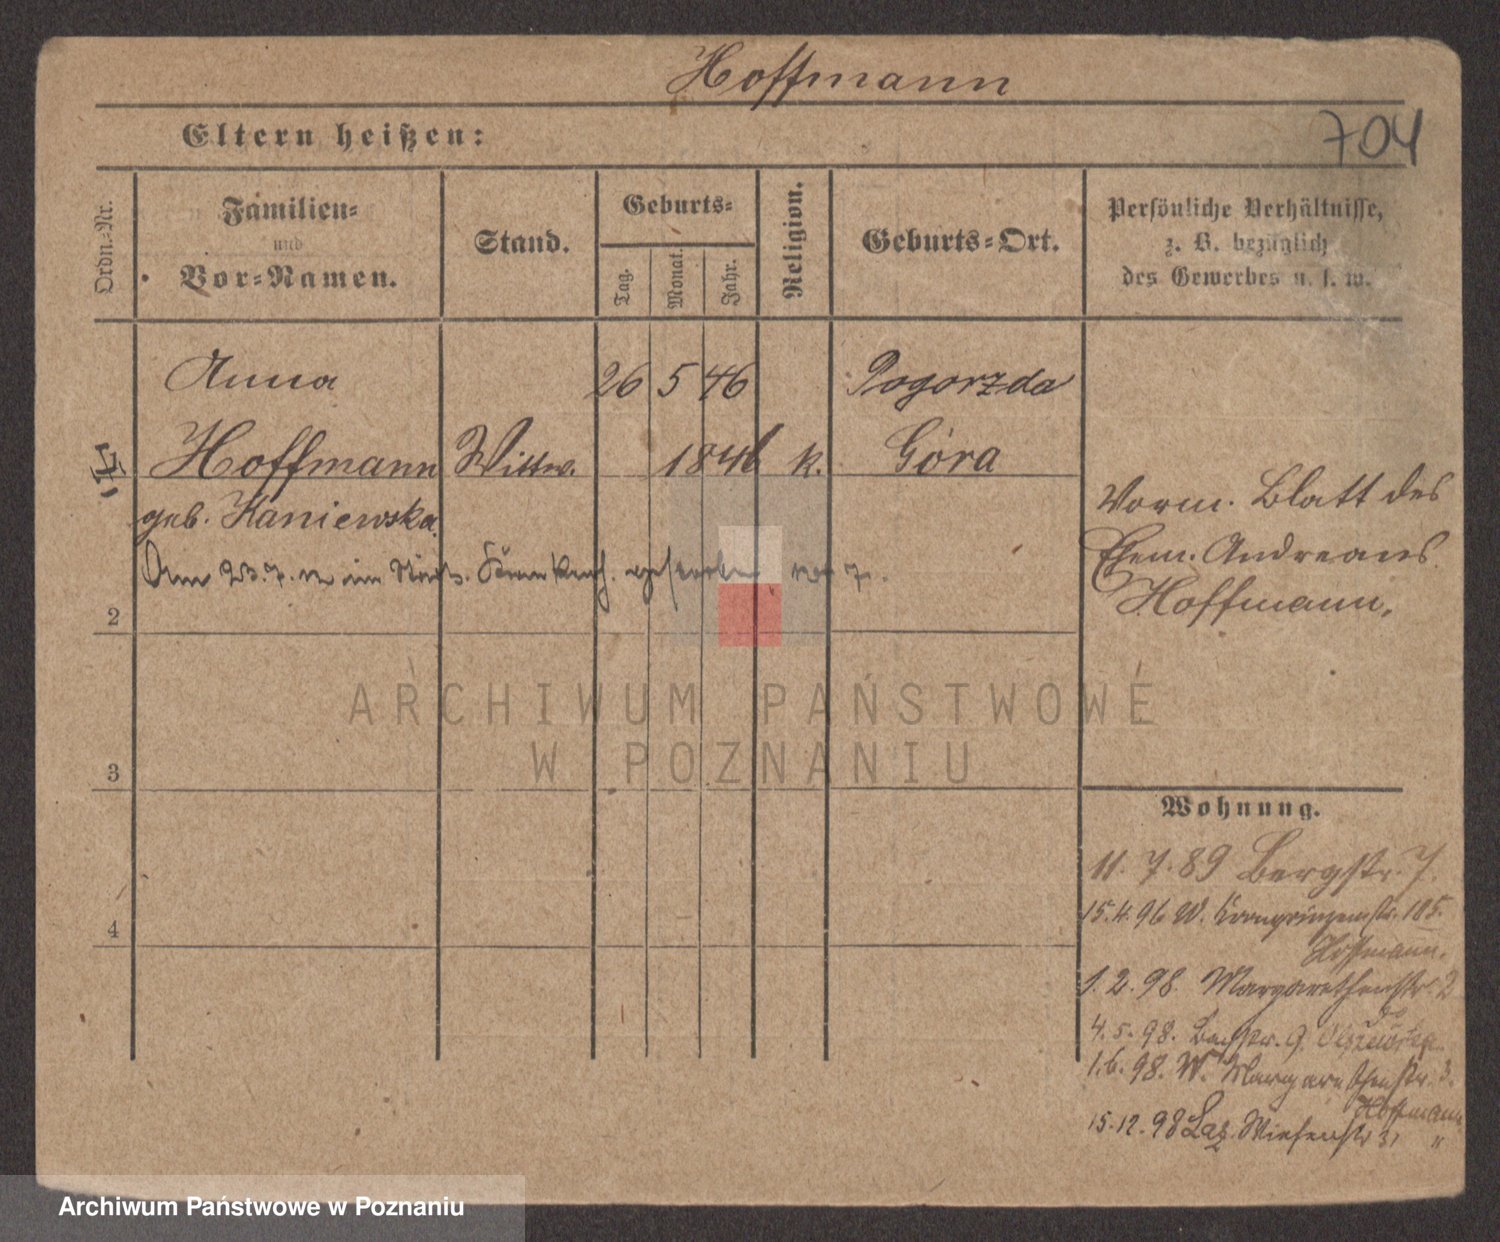 Hoffmann
704
Eltern heißen:
Ordn.-Nr.
Familien-
und
Vor-Namen.
Stand.
Geburts-
Tag.
Monat.
Jahr.
Religion.
Geburts-Ort.
Persönliche Verhältnisse,
z. B. bezüglich
des Gewerbes u. s. w.
Anna 26 5 46 Pogorzela
Hoffmann Wittw. 1846 k. Góra
geb. Kaniewska
Am 23.7. im gestorben
Vorm. Blatt des
Ehem. Andreas
Hoffmann.
2
3
4
Wohnung.
11.7.89 Bergstr. 7.
15.4.96 W. Kronprinzenstr. 105.
Hoffmann.
1.2.98. Margarethenstr. 2
4.5.98. Bachstr. 9.
1.6.98. W. Margarethenstr. 3.
Hoffmann
15.12.98 Laz. Wiesenstr 31 "
ARCHIWUM PAŃSTWOWE
W POZNANIU
Archiwum Państwowe w Poznaniu